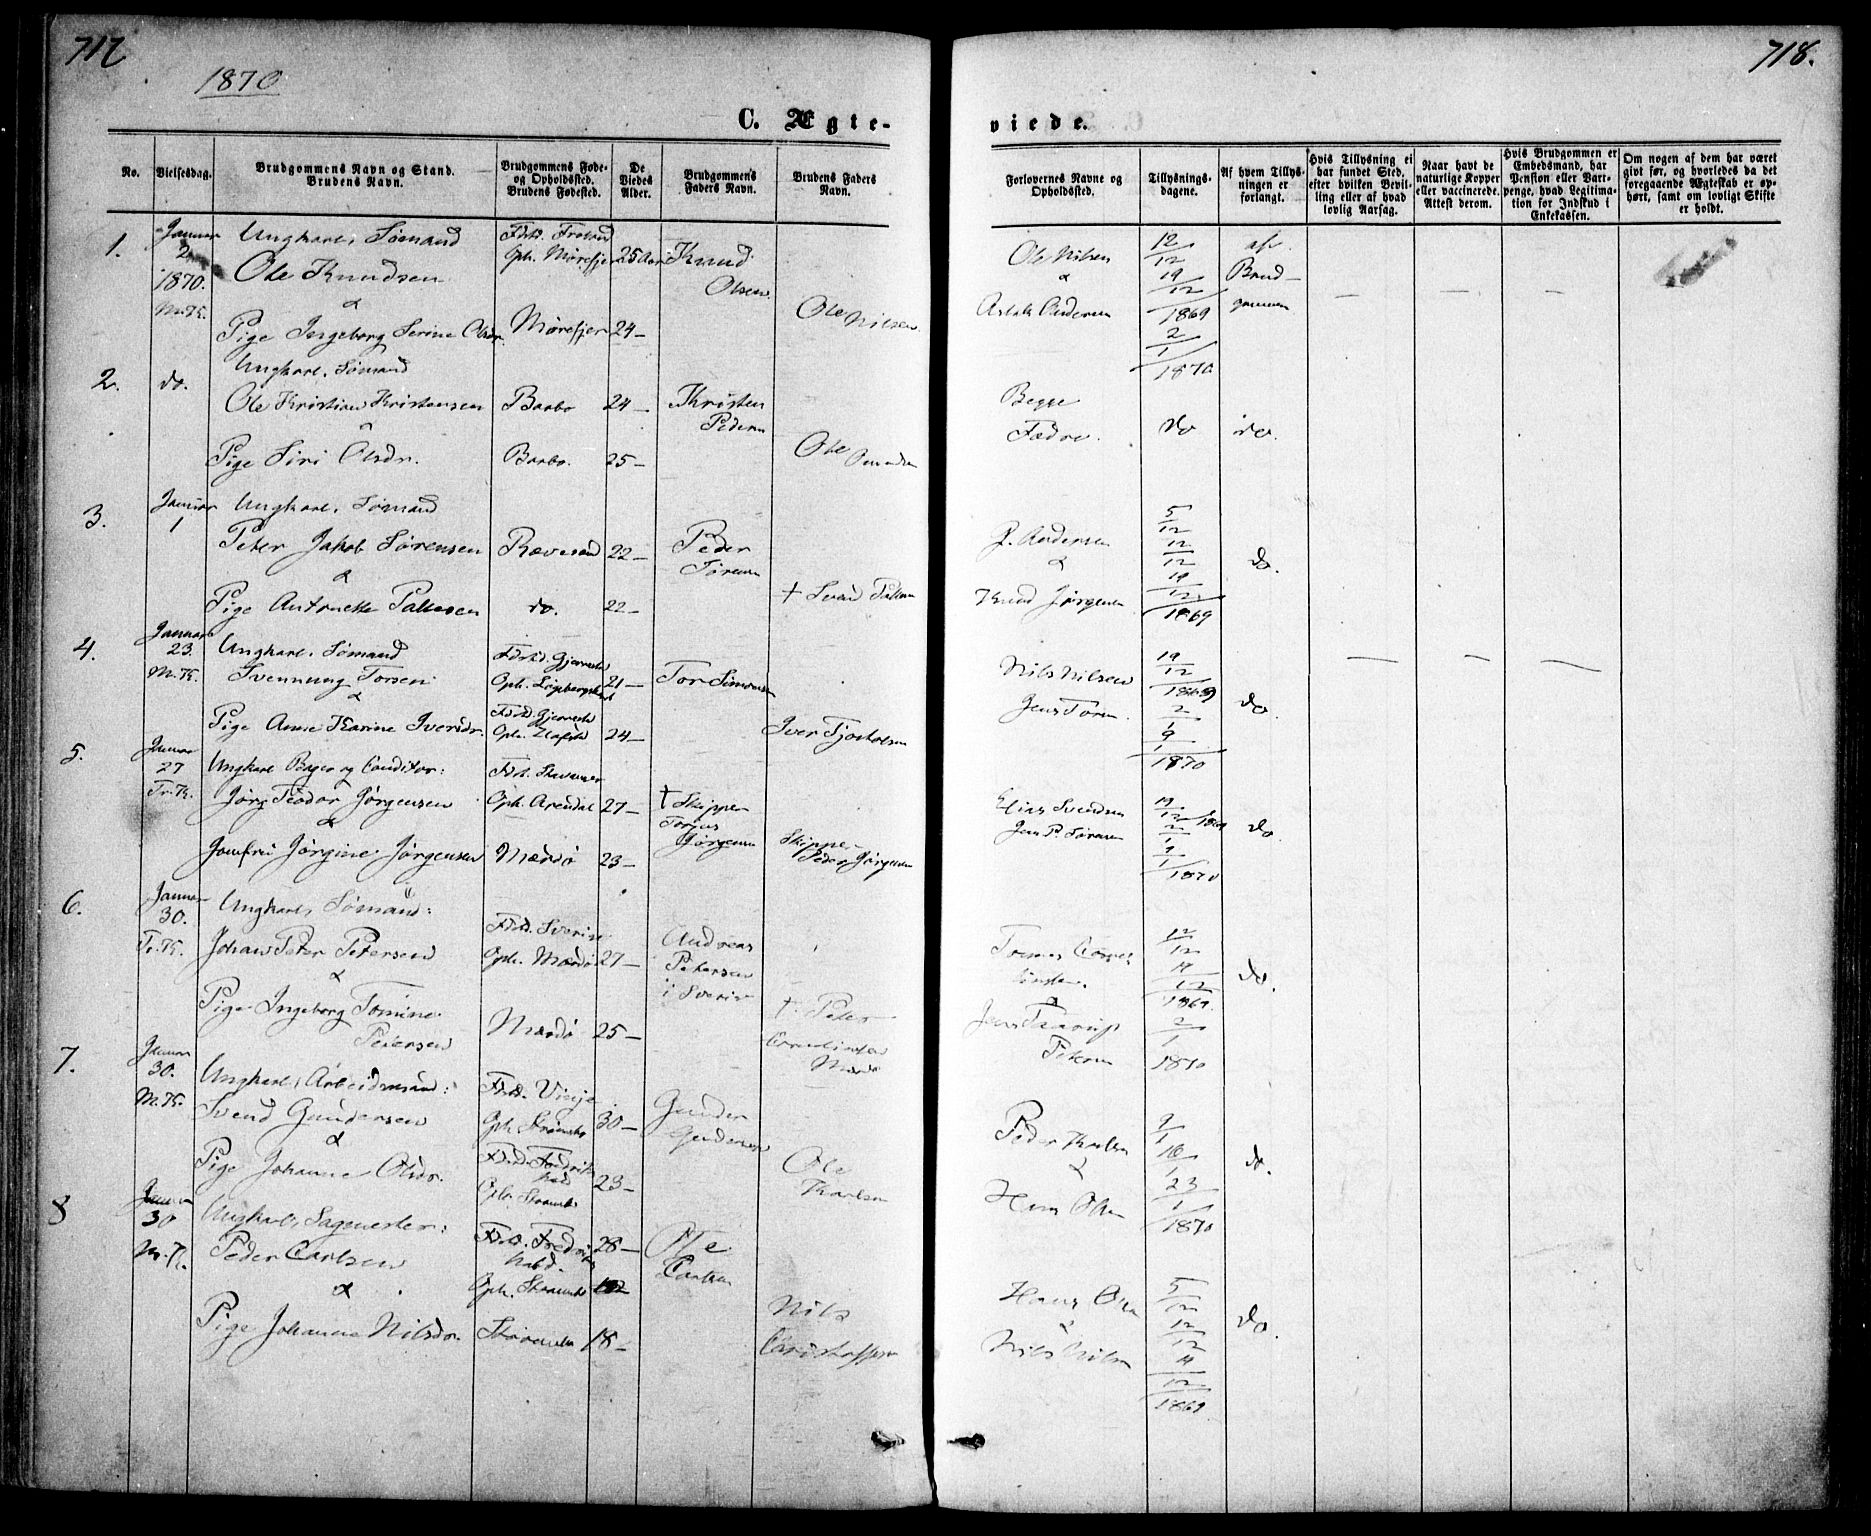 717
1870
718.
C. Ægte-
viede.
No.
Vielsesdag.
Brudgommens Navn og Stand.
Brudens Navn.
Brudgommens Føde-
og Opholdssted.
Brudens Fødested.
De
Viedes
Alder.
Brudgommens
Faders Navn.
Brudens Faders
Navn.
Forlovernes Navne og
Opholdssted.
Tillysnings-
dagene.
Af hvem Tillys-
ningen er
forlangt.
Hvis Tillysning ei
har fundet Sted,
efter hvilken Bevil-
ling eller af hvad
lovlig Aarsag.
Naar havt de
naturlige Kopper
eller vaccinerede.
Attest derom.
Hvis Brudgommen er
Embedsmand, har
Pension eller Vart-
penge, hvad Legitima-
tion for Indskud i
Enkekassen.
Om nogen af dem har været
givt før, og hvorledes da det
foregaaende Ægteskab er op-
hørt, samt om lovligt Skifte
er holdt.
1.
Januar
2
1870.
M.K.
Ungkarl, Sømand
Ole Knudsen
&
Pige Ingeborg Serine Olsdr.
Fdst. Froland
Oph. Mørefjer
Mørefjer
25 Aar
24 —
Knud
Olsen.
Ole Nilsen.
Ole Nilsen
&
Aslak Andersen
12/12
19/12
1869
2/1
1870
af
Brud-
gommen
— — —
2.
do.
Ungkarl, Sømand
Ole Kristian Kristensen
&
Pige Siri Olsdr.
Barbo
Barbo.
24 —
25 —
Kristen
Pedersen
Ole
Begge
Fædre.
do
do.
3.
Januar
1
Ungkarl, Sømand
Peter Jakob Sørensen
&
Pige Antonette Pallesen
Rævesand
do.
22 —
22 —
Peder
Sørensen
† Svend Pallesen
P. Andersen
&
Knud Jørgensen
5/12
12/12
19/12
1869
do.
4.
Januar
23.
M.K.
Ungkarl, Sømand
Svennung Torsen
&
Pige Anne Karine Iversdr.
Fdst. Gjerrestad
Oph.
Fdst. Gjerrestad
Oph.
21 —
24 —
Tor Simonsen
Iver
Nils Nilsen
Jens
19/12
1869
2/1
9/1
1870
do.
— — —
5.
Januar
27
Tr.K.
Ungkarl Bager og Conditor:
Jørg Teodor Jørgensen
&
Jomfru Jørgine Jørgensen
Fdst. Stavanger
Oph. Arendal
Mærdø
27 —
23 —
† Skipper
Torjus
Jørgensen
Skipper
Peder Jørgensen
Elias Svendsen
Jens P. Sørensen
19/12 1869
2/1
9/1
1870
do.
6.
Januar
30.
Tr.K.
Ungkarl, Sømand:
Johan Peter Petersen
&
Pige Ingeborg Tomine
Petersen
Fdst. Sverige
Oph. Mærdø
Mærdø
27 —
25 —
Andreas
Petersen
i Sverige
† Peter
Mærdø
Jens
Petersen
12/12
19/12
1869.
2/1
1870
do.
7.
Januar
30.
M.K.
Ungkarl, Arbeidsmand:
Svend Gundersen
&
Pige Johanne Olsdr.
Fdst. Vinje
Oph. Strømsbo
Fdst. Fredriks
hald
Oph. Strømsbo
30 —
23 —
Gunder
Gundersen
Ole
Karlsen
Peder Karlsen
&
Hans Olsen
9/1
16/1
23/1
1870
do.
8
Januar
30
M.K.
Ungkarl, Sagmester:
Peder Carlsen
&
Pige Johanne Nilsdr.
Fdst. Fredriks
hald.
Oph. Strømsbo
Strømsbo
28 —
18 —
Ole
Carlsen
Nils
Hans Olsen
&
Nils Nilsen
5/12
12/12
19/12
1869
do.